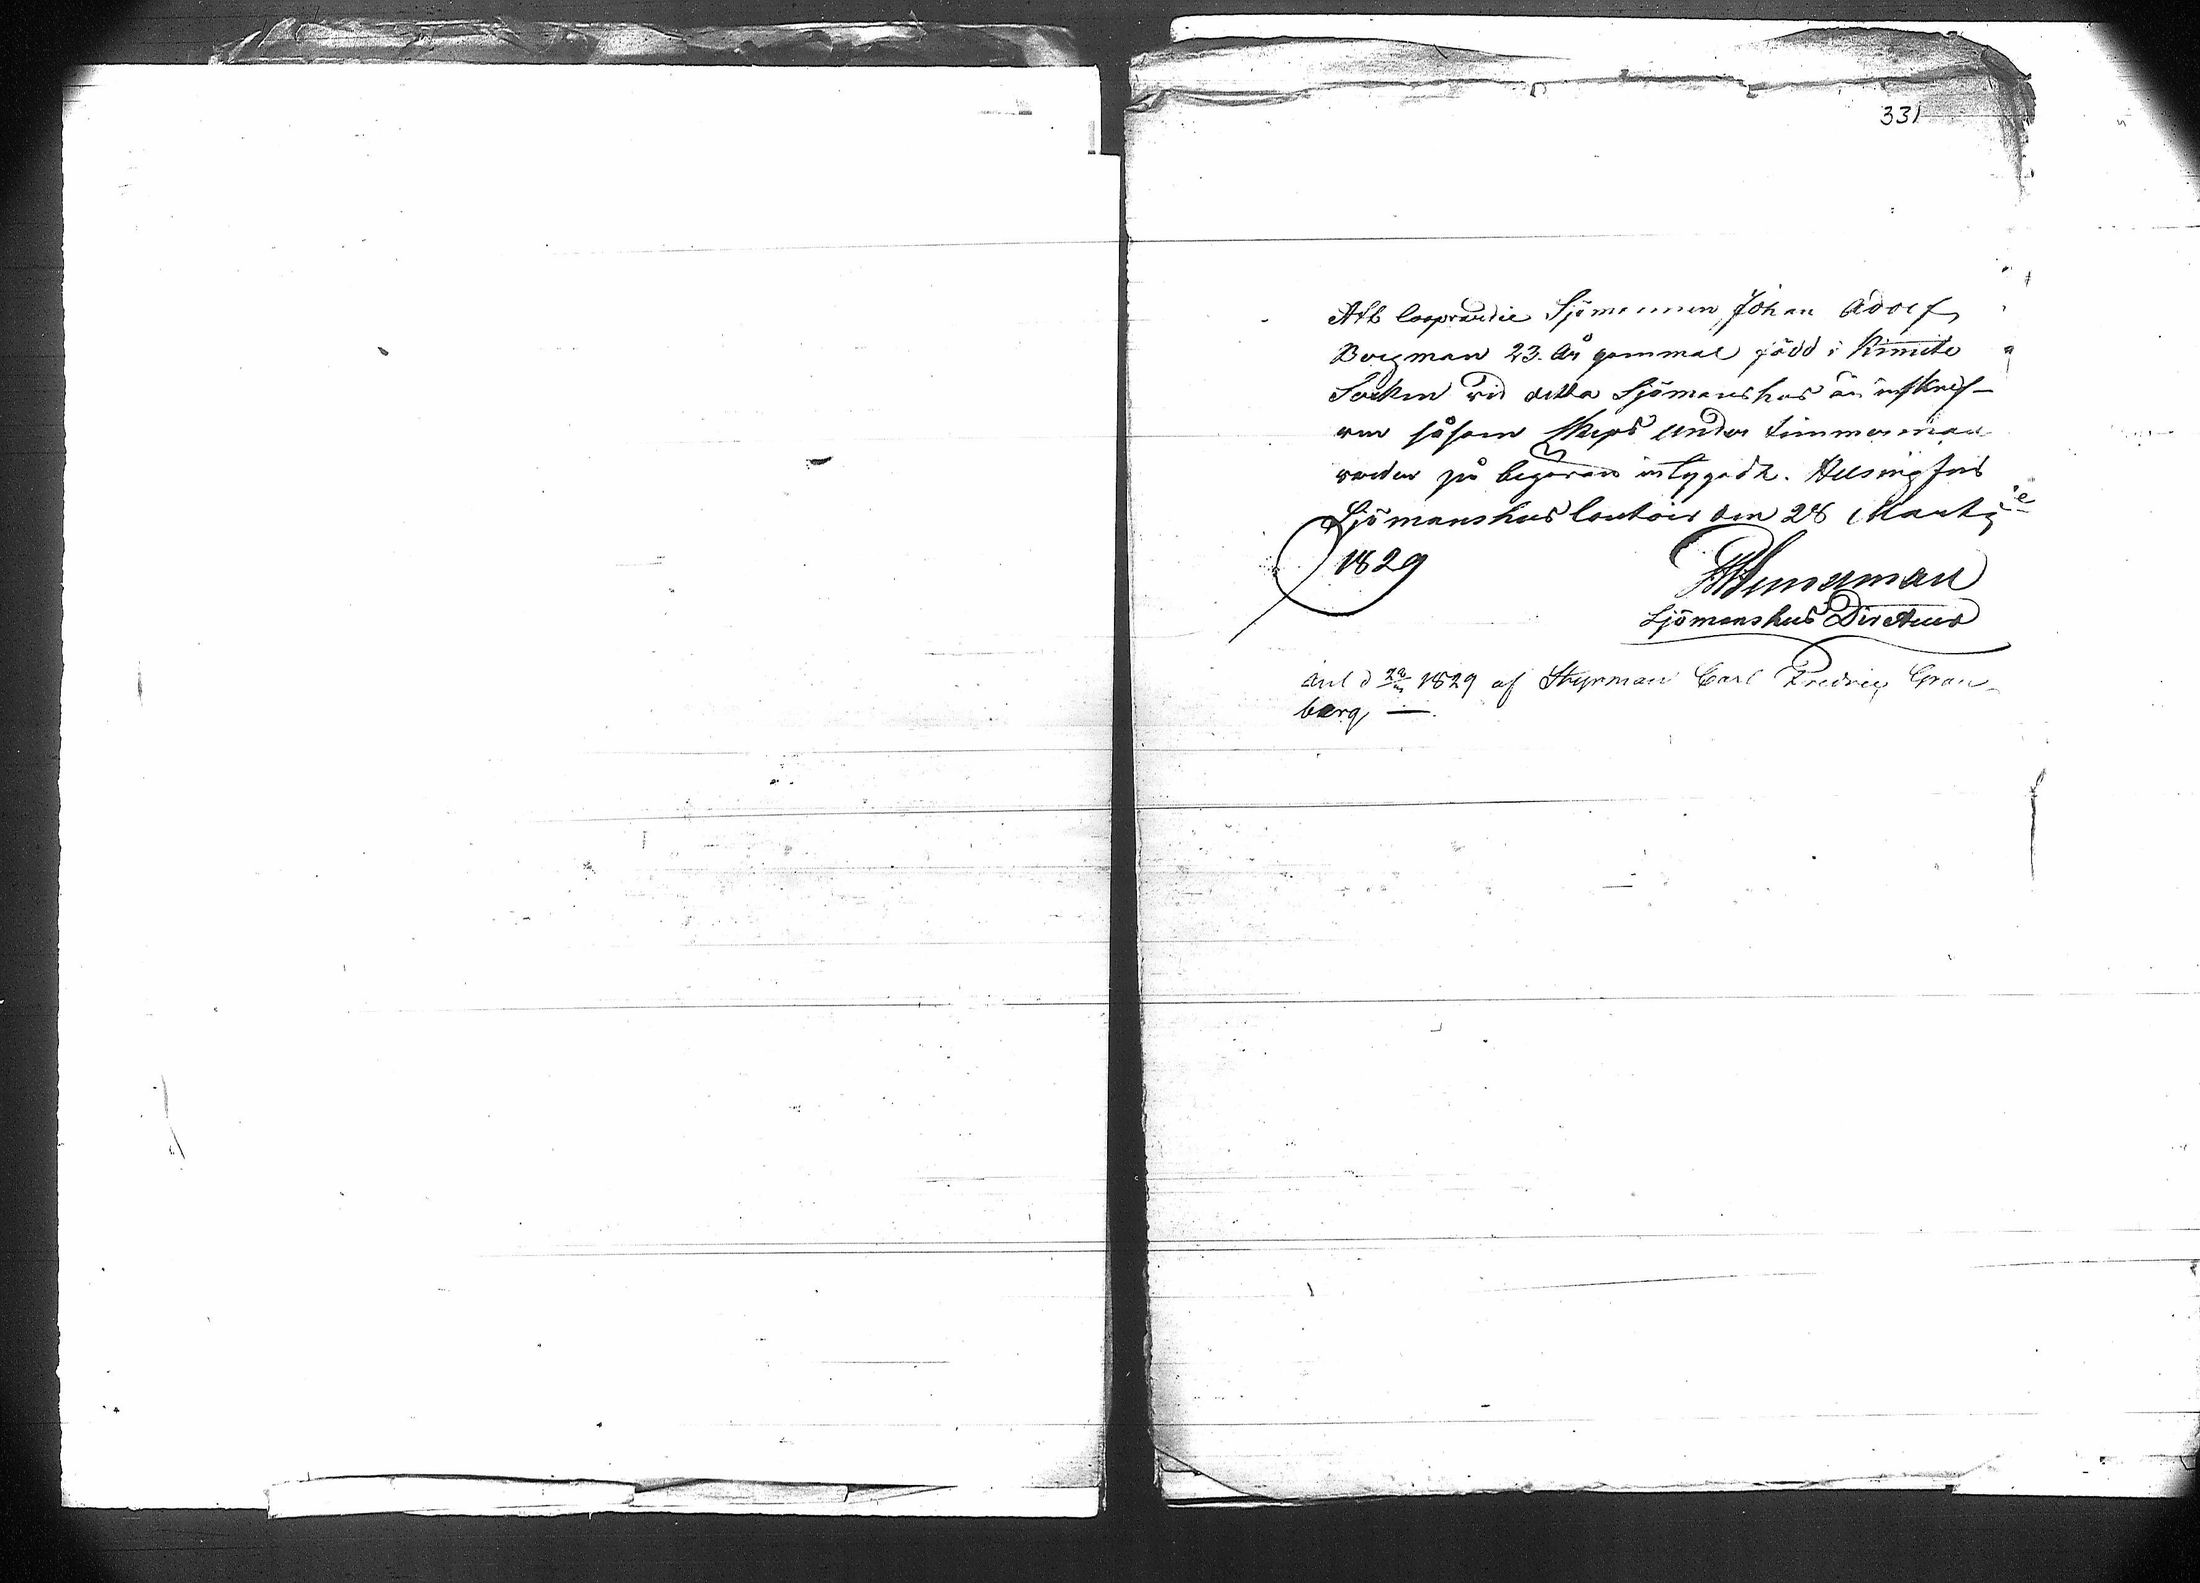 331
Att Coopvardie Sjömannen Johan Adolf
Bergman 23. År gammal född i Kimito
Sockn vid detta Sjömanshus är inskrif-
ven såsom Skeps under timmerman
varder på begäran intygadt. Helsingfors
Sjömanshus Contoir den 28 Marty
1829
Sjömanshus Directeur
Ank d 1829 af Styrman Carl Fredric Gran-
berg —